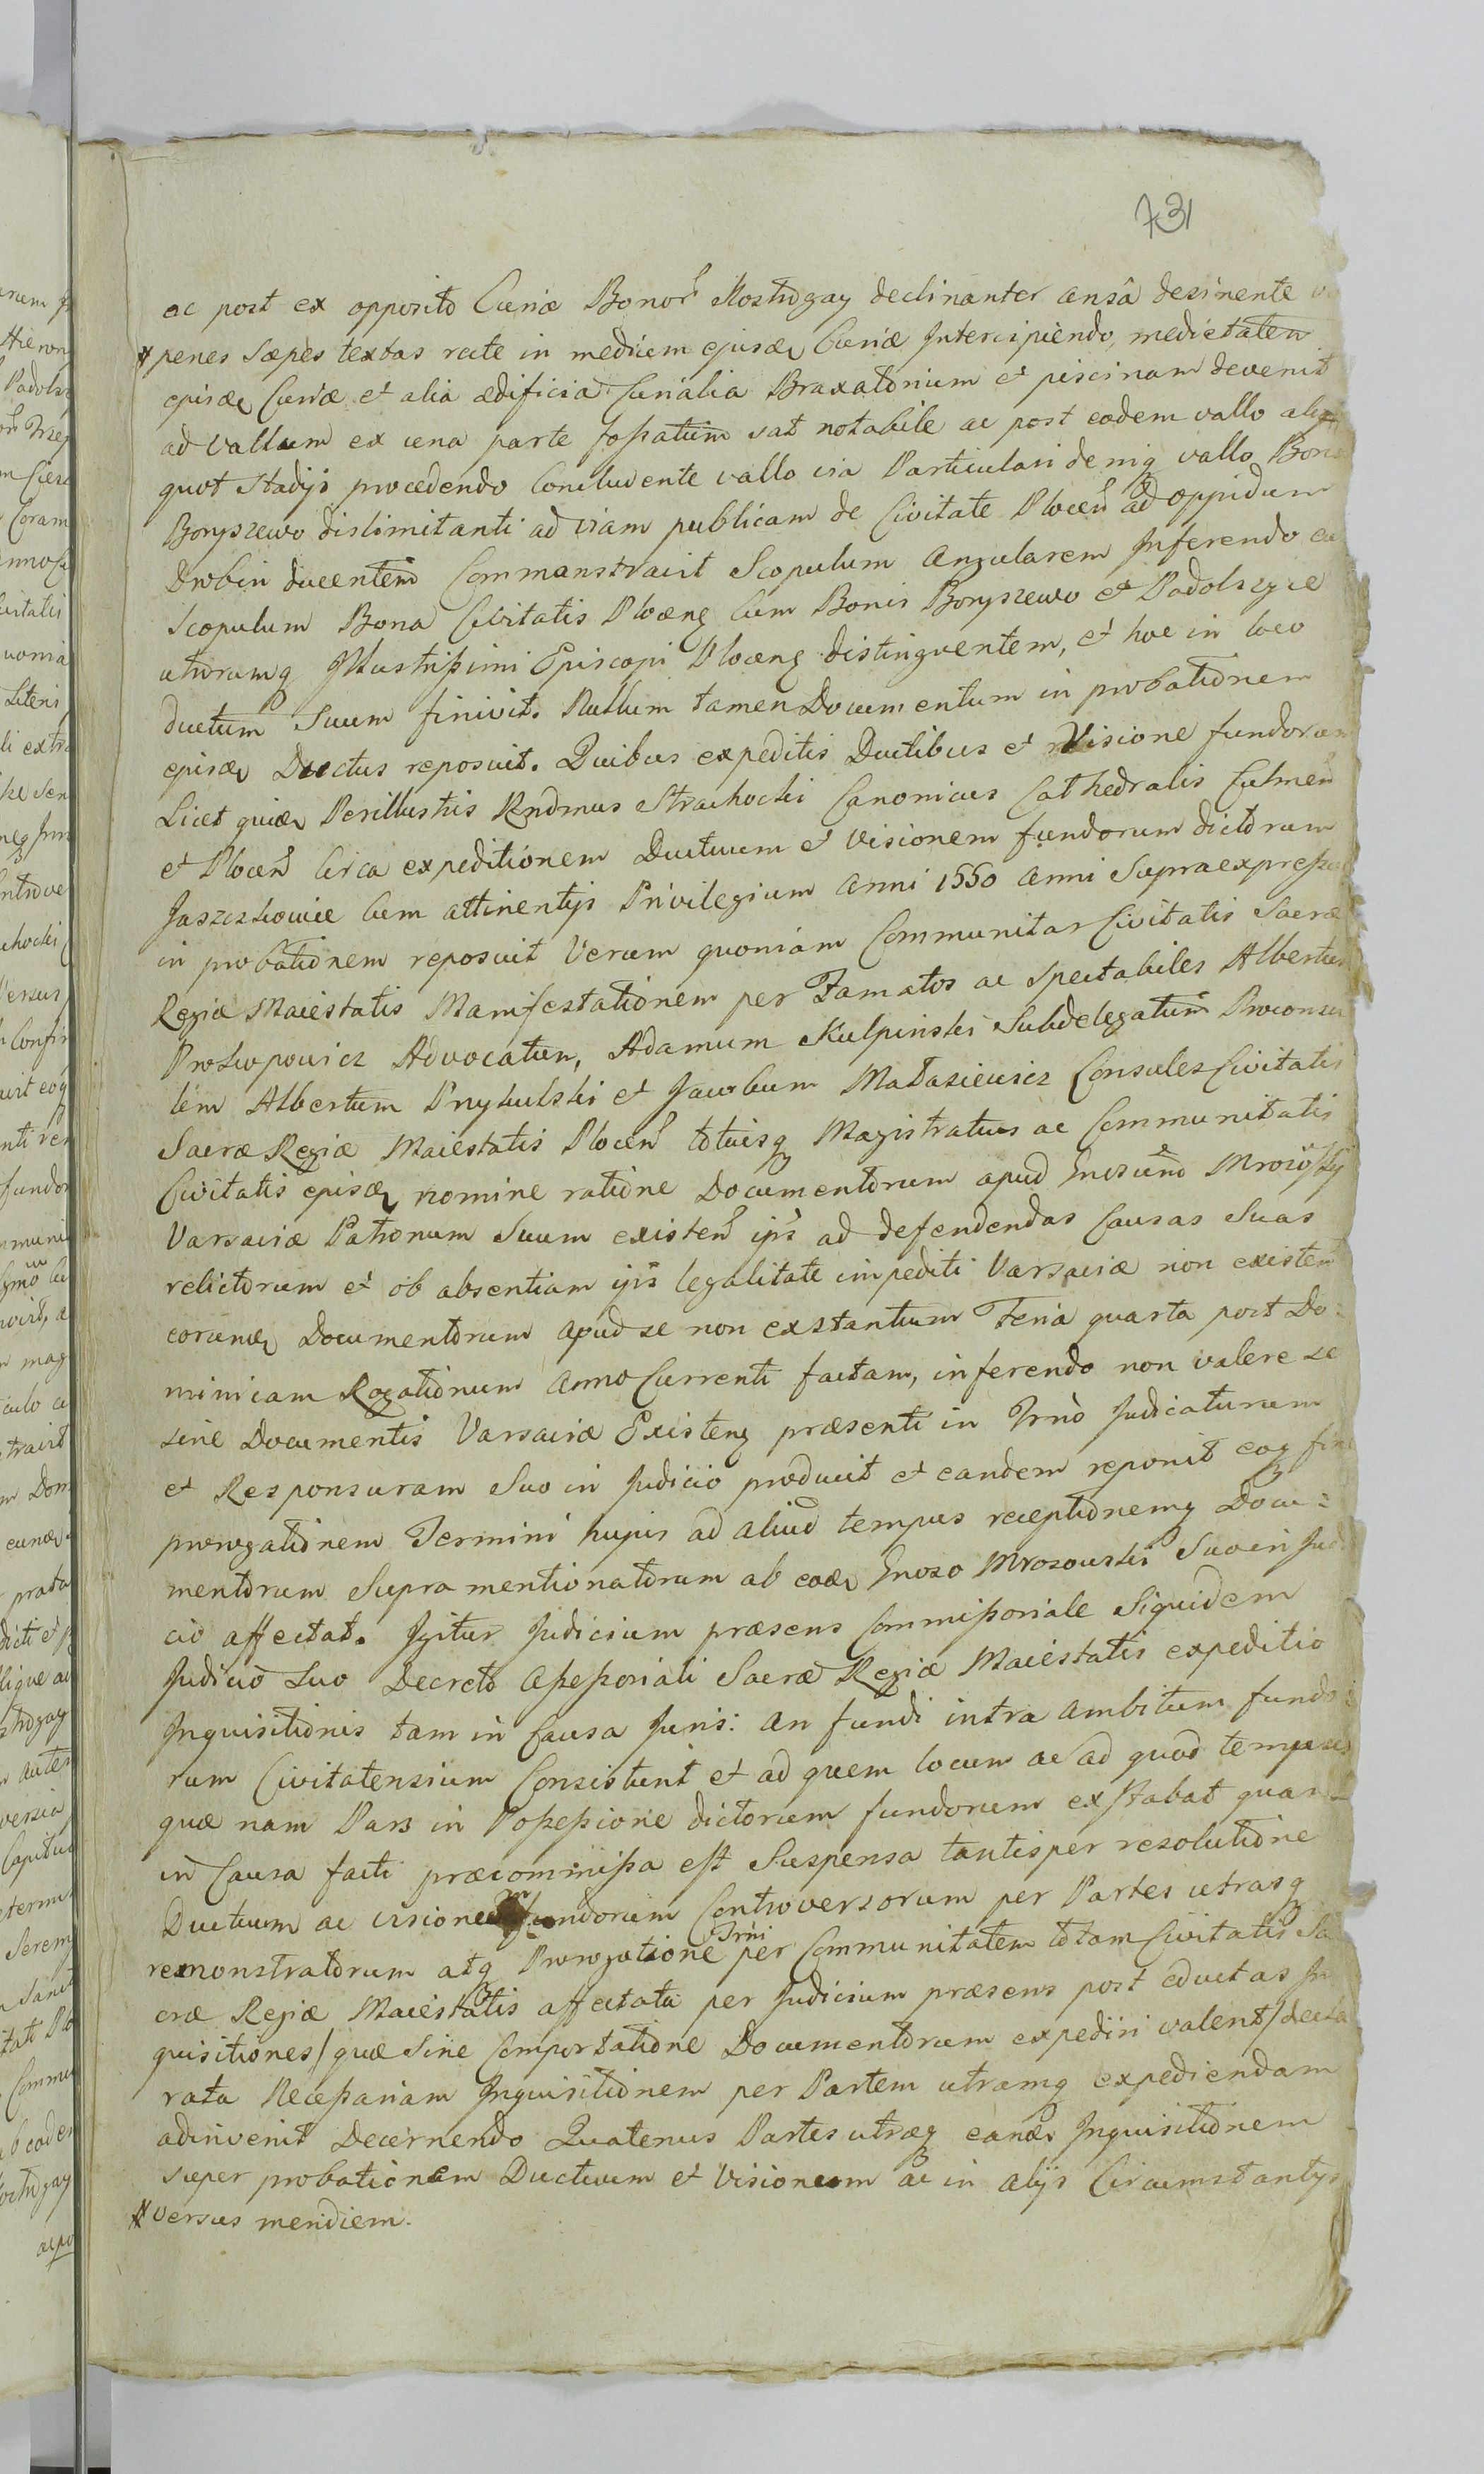 731
ac post ex opposito Curiæ Bonor Rostrogay declinanter ansâ desinente
penes Sæpes textas recte in medium ejusdem Curiæ Intercipiendo, medietatem
ejusdem Curiæ et alia ædificia Curialia Braxatorium et piscinam devenit
ad Vallum ex una parte fossatum sat notabile ac post eodem vallo ali
quot Stadijs procedendo Concludente vallo via Particulari deniq vallo Bona
Boryszewo dislimitanti ad viam publicam de Civitate Plocen ad oppidum
Drobin ducentem Commonstravit Scopulum Angularem Inferendo eu
Scopulum Bona Civitatis Plocens Cum Bonis Boryszewo et Podolszyce
utrumq Illustrissimi Episcopi Plocens distinguentem, et hoc in loco
ductum Suum finivit. Nullum tamen Documentum in probationem
ejusdem Ductus reposuit. Quibus expeditis Ductibus et Visione fundorum
Licet quidem Perillustris Rndmus Strachocki Canonicus Cathedralis Culmen
et Plocen Circa expeditionem Ductuum et Visionem fundorum dictorum
Jaszczkowice Cum attinentijs Privilegium Anni 1550 Anni Supraexpressi
in probationem reposuit Verum quoniam Communitas Civitatis Sacræ
Regiæ Maiestatis Manifestationem per Famatos ac Spectabiles Albertum
Prokopowicz Advocatum, Adamum Kulpinski Subdelegatum Proconsu
lem Albertum Przykulski et Jacobum Mataziewicz Consules Civitatis
Sacræ Regiæ Maiestatis Plocen totiusq Magistratus ac Communitatis
Civitatis ejusdem nomine ratione Documentorum apud Gnosum Mrozows
Varsaviæ Patronum Suum existen ips ad defendendas Causas Suas
relictorum et ob absentiam ijs legalitate impediti Varsaviæ non existen
eorundem Documentorum apud se non exstantium Feria quarta post Do:
minicam Rogationum Anno Currenti factam, inferendo non valere se
sine Documentis Varsaviæ Existens præsenti in Trno Judicaturam
et Responsuram Suo in Judicio producit et eandem reponit eoq fine
prorogationem Termini hujus ad aliud tempus receptionemq Docu:
mentorum Supra mentionatorum ab eodem Gnoso Mrozowski Suo in Judi
cio affectat. Igitur Judicium præsens Commissoriale Siquidem
Judicio Suo Decreto Assessoriali Sacræ Regiæ Maiestatis expeditio
Inquisitionis tam in Causa Juris: An fundi intra Ambitum fundo
rum Civitatensium Consistunt et ad quem locum ac ad quod tempus
quæ nam Pars in Possessione dictorum fundorum exstabat quam
in Causa facti præcommissa est Suspensa tantisper resolutione
Ductuum ac visionem fundorum Controversorum per Partes utrasq
remonstratorum atq Prorogatione Trni per Communitatem totam Civitatis Sa
cræ Regiæ Maiestatis affectata per Judicium præsens post eductas In
quisitiones/ quæ Sine Comportatione Documentorum expediri valent/ decla
rata Necessariam Inquisitionem per Partem utramq expediendam
adinvenit Decernendo Quatenus Partes utræq eandem Inquisitionem
super probationem Ductuum et Visionum ac in alijs Circumstantijs
versus meridiem.